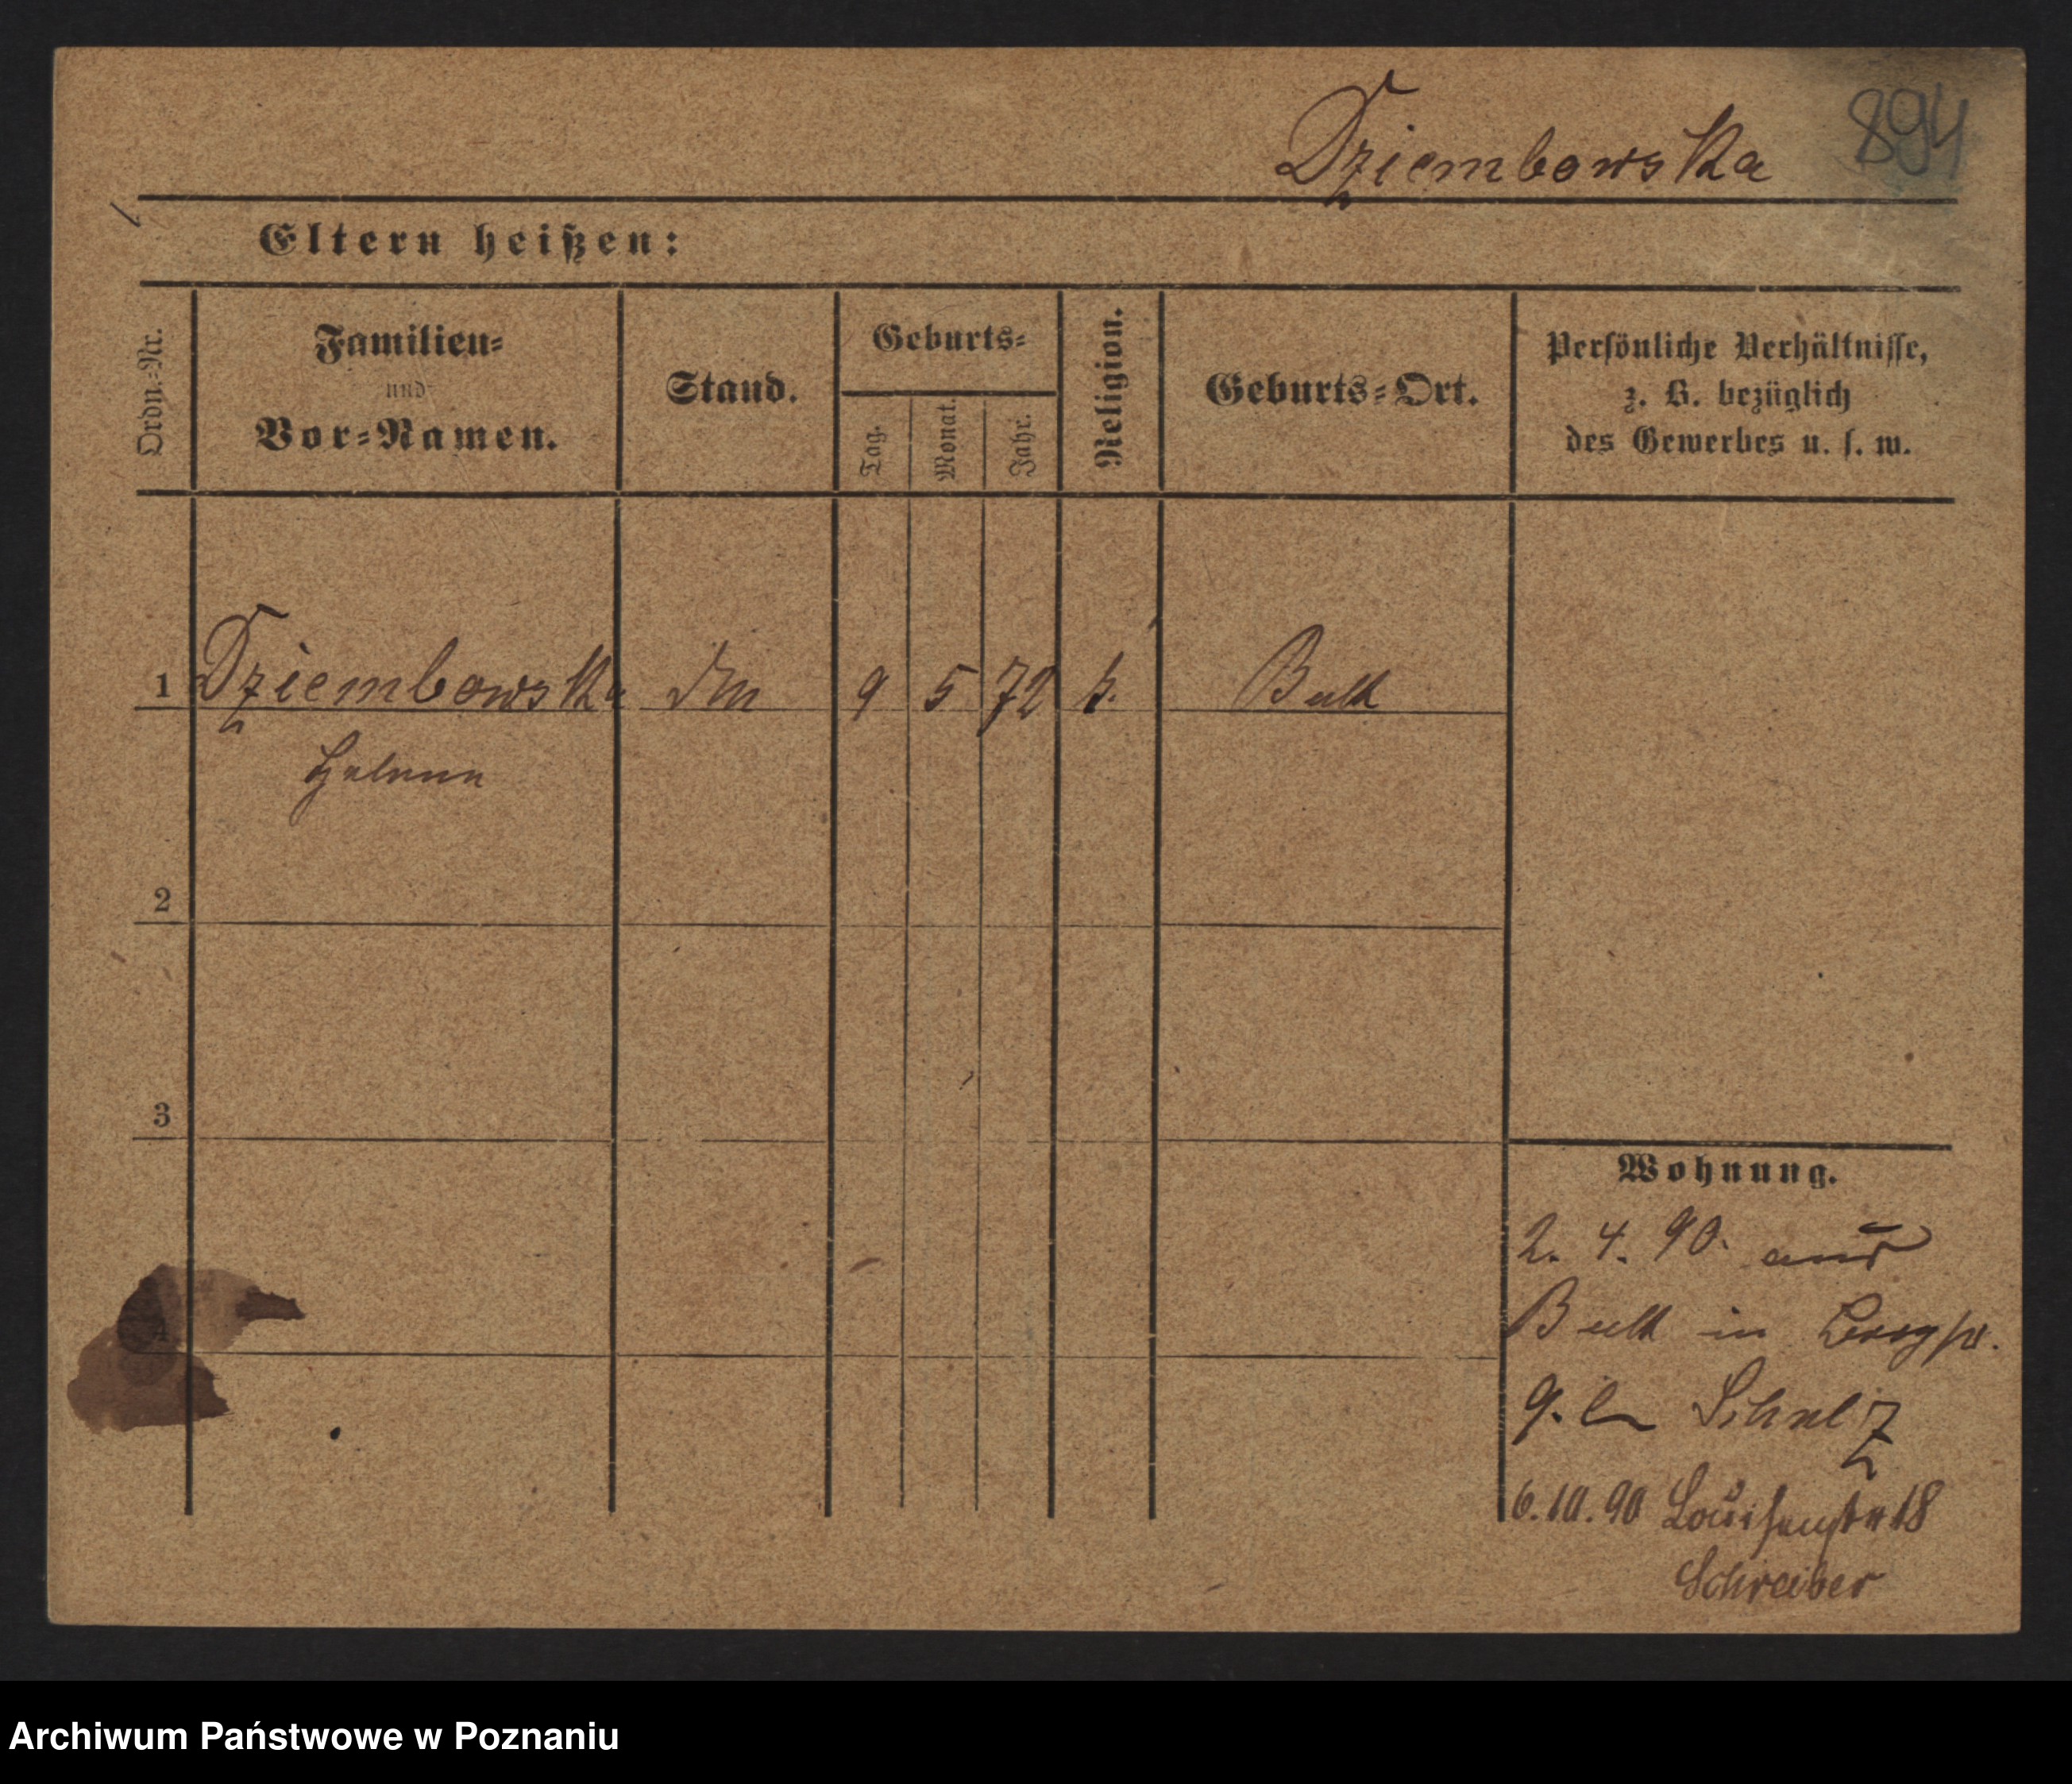 Dziembowska 894
Eltern heißen:
Ordn.-Nr.
Familien-
und
Vor-Namen.
Stand.
Geburts-
Tag.
Monat.
Jahr.
Religion.
Geburts-Ort.
Persönliche Verhältnisse,
z. B. bezüglich
des Gewerbes u. s. w.
1 Dziembowska 9 5 72 k. Buk
Helene
2
3
4
Wohnung.
2. 4. 90. aus
Buk in
9. Schulz
6.10.90 Louisenstr 18
Schreiber
Archiwum Państwowe w Poznaniu